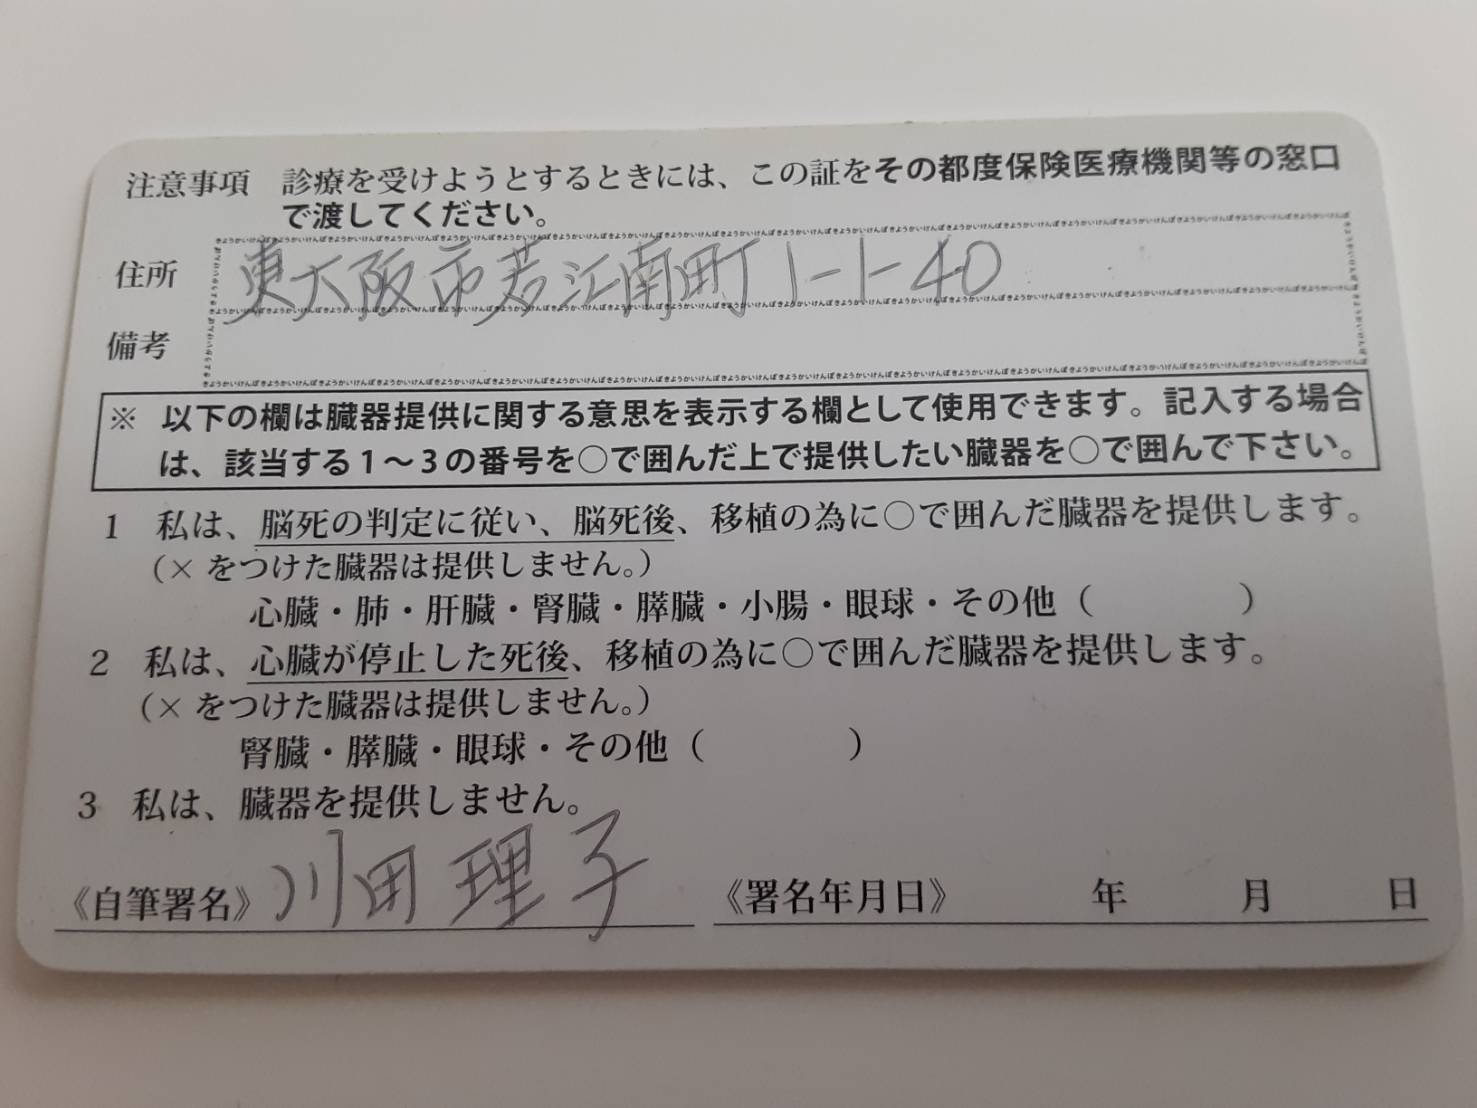 注意事項 診療を受けようとするときには、この証をその都度保険医療機関等の窓口
で渡してください。
住所 東大阪市若江南町1-1-40
備考
※ 以下の欄は臓器提供に関する意思を表示する欄として使用できます。記入する場合
は、該当する1～3の番号を○で囲んだ上で提供したい臓器を○で囲んで下さい。
1 私は、脳死の判定に従い、脳死後、移植の為に○で囲んだ臓器を提供します。
（× をつけた臓器は提供しません。）
心臓・肺・肝臓・腎臓・膵臓・小腸・眼球・その他（　　　　）
2 私は、心臓が停止した死後、移植の為に○で囲んだ臓器を提供します。
（× をつけた臓器は提供しません。）
腎臓・膵臓・眼球・その他（　　　　）
3 私は、臓器を提供しません。
《自筆署名》川田理子 《署名年月日》 年 月 日